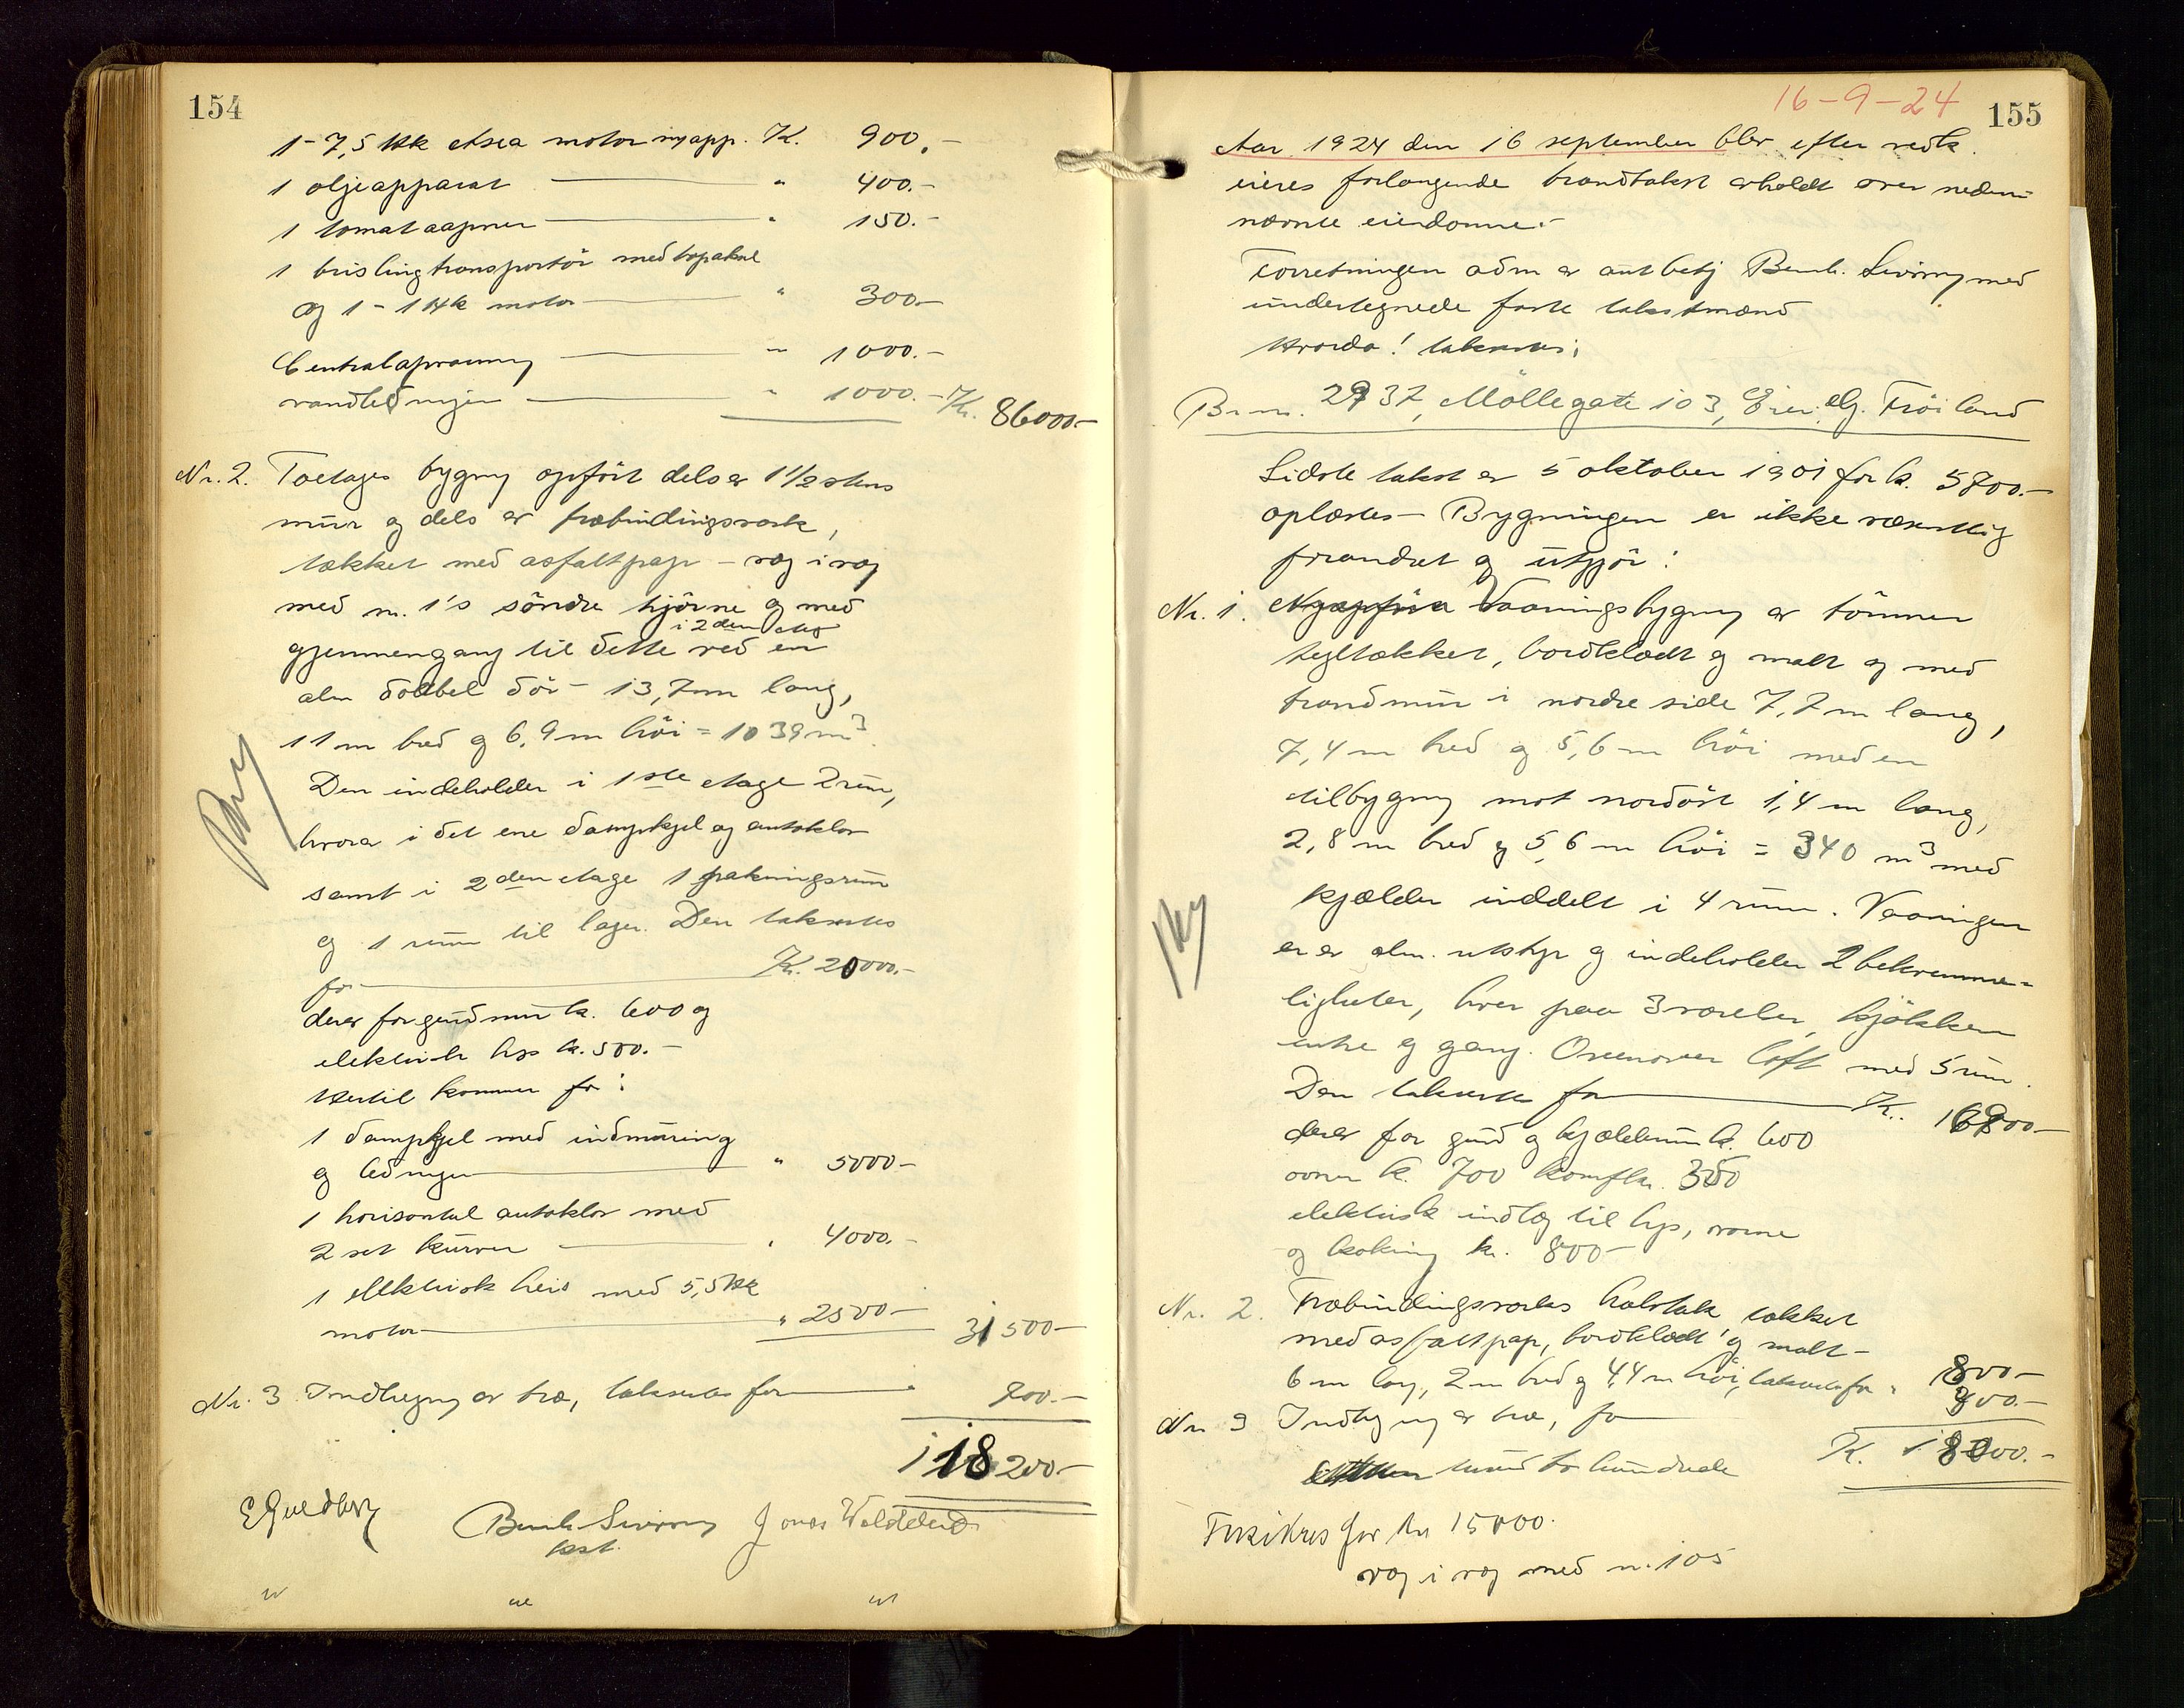 154
1-7,5 Hk Asea motor m/app. K. 900.-
1 oljeapparat " 400.-
1 tomataapner " 150.-
1 brislingtransportör med
og 1-1 Hk motor " 300.-
Centralopvarming " 1000.-
vandledninger " 1000.- Kr. 86000.-
Nr. 2. Toetages bygning opfört dels av 1 1/2 stens
mur og dels av træbindingsverk,
tækket med asfaltpap - væg i væg
med nr. 1's söndre hjörne og med
i 2den etg
gjennemgang til dette ved en
alm dobbel dör - 13,7 m lang,
11 m bred og 6,9 m höi = 1039 m³.
Den indeholder i 1ste etage 2 rum,
hvorav i det ene dampkjel og autoklav
samt i 2den etage 1 pakningsrum
og 1 rum til lager. Den takseres
for Kr. 20000.-
derav for grundmur k. 600 og
elektrisk lys k. 500.-
Hertil kommer for:
1 dampkjel med indmuring
og ledninger " 5000-
1 horisontal autoklav med
2 set kurver " 4000.-
1 elektrisk heis med 5,5 Hk
motor " 2500- 31500-
Nr. 3 Indhegning av træ, takseres for " 700.-
118200-
E Guldberg Bernh. Sivring Jonas Waldeland
kst.
155
16-9-24
Aar 1924 den 16 september blev efter vedk.
eieres forlangende brandtakst avholdt over neden-
nævnte eiendomme.-
Forretningen adm av ant betj Bernh. Sivring med
undertegnede faste takstmænd
Hvorda! takseres:
Br.nr. 2937, Möllegate 103, Eier: Fröiland
Sidste takst av 5 oktober 1901 for k. 5700.-
oplæstes - Bygningen er ikke væsentlig
forandret og utgjör:
Nr. 1. Nyopført Vaaningsbygning av tömmer
tegltækket, bordklædt og malt og med
brandmur i nordre side 7,7 m lang,
7,4 m bred og 5,6 m höi med en
tilbygning mot nordöst 1,4 m lang,
2,8 m bred og 5,6 m höi = 340 m³ med
kjælder inddelt i 4 rum. Vaaningen
er av alm. utstyr og indeholder 2 bekvemme-
ligheter, hver paa 3 værelser, kjökken
entre og gang. Ovenover loft med 5 rum.
Den takseres for Kr. 16800-
derav for grund og kjældermur k. 600
ovner k. 700 komfkr. 350
elektrisk indlæg til lys, varme
og koking kr. 800-
Nr. 2. Træbindingsverks halvtak, tækket
med asfaltpap, bordklædt og malt-
6 m lang, 2 m bred og 4,4 m höi, takseres for " 800-
Nr 3 Indhegning av træ, for 400.-
K. 18000.-
Forsikres for kr 15000.
væg i væg med nr. 105